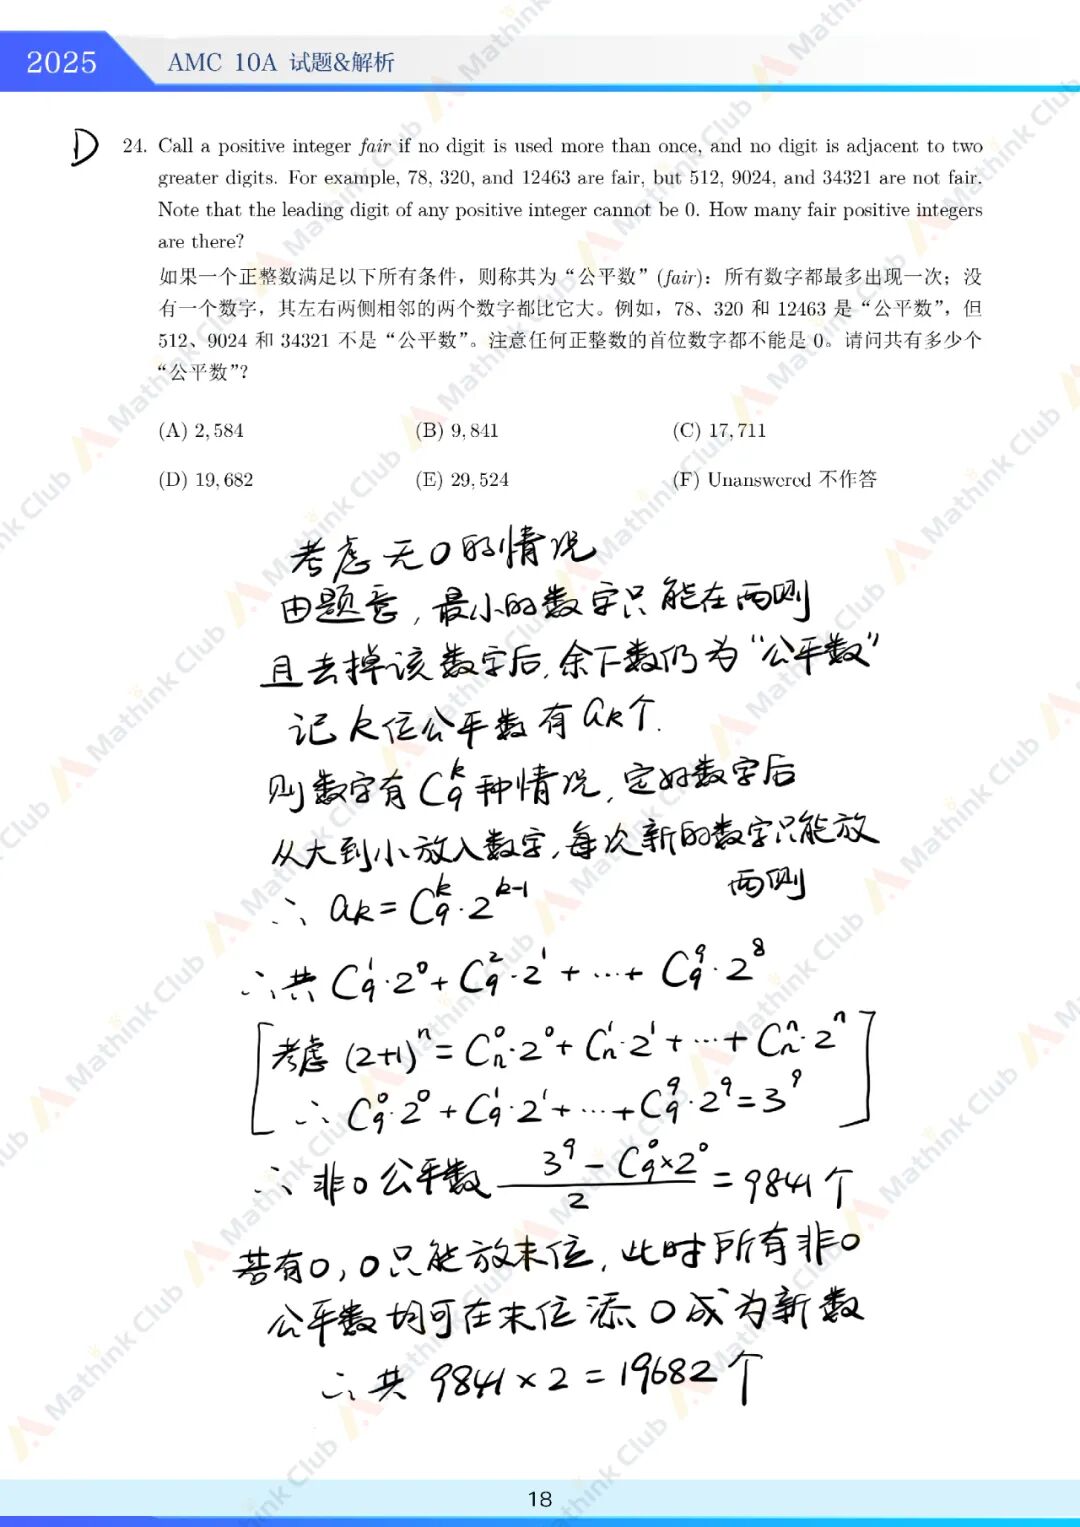 2025 AMC 10A 试题&解析
D 24. Call a positive integer fair if no digit is used more than once, and no digit is adjacent to two
greater digits. For example, 78, 320, and 12463 are fair, but 512, 9024, and 34321 are not fair.
Note that the leading digit of any positive integer cannot be 0. How many fair positive integers
are there?
如果一个正整数满足以下所有条件，则称其为“公平数”(fair)：所有数字都最多出现一次；没
有一个数字，其左右两侧相邻的两个数字都比它大。例如，78、320 和 12463 是“公平数”，但
512、9024 和 34321 不是“公平数”。注意任何正整数的首位数字都不能是 0。请问共有多少个
“公平数”？
(A) 2,584 (B) 9,841 (C) 17,711
(D) 19,682 (E) 29,524 (F) Unanswered 不作答
考虑无0的情况
由题意，最小的数字只能在两侧
且去掉该数字后,余下数仍为“公平数”
记k位公平数有aₖ个.
则数字有C₉ᵏ种情况,定好数字后
从大到小放入数字,每次新的数字只能放
两侧
∴ aₖ=C₉ᵏ·2ᵏ⁻¹
∴共 C₉¹·2⁰+C₉²·2¹+…+C₉⁹·2⁸
[考虑 (2+1)ⁿ=Cₙ⁰·2⁰+Cₙ¹·2¹+…+Cₙⁿ·2ⁿ
∴ C₉⁰·2⁰+C₉¹·2¹+…+C₉⁹·2⁹=3⁹]
∴ 非0公平数 (3⁹-C₉⁰×2⁰)/2 = 9841个
若有0,0只能放末位,此时所有非0
公平数均可在末位添0成为新数
∴共 9841×2=19682个
18
Mathink Club